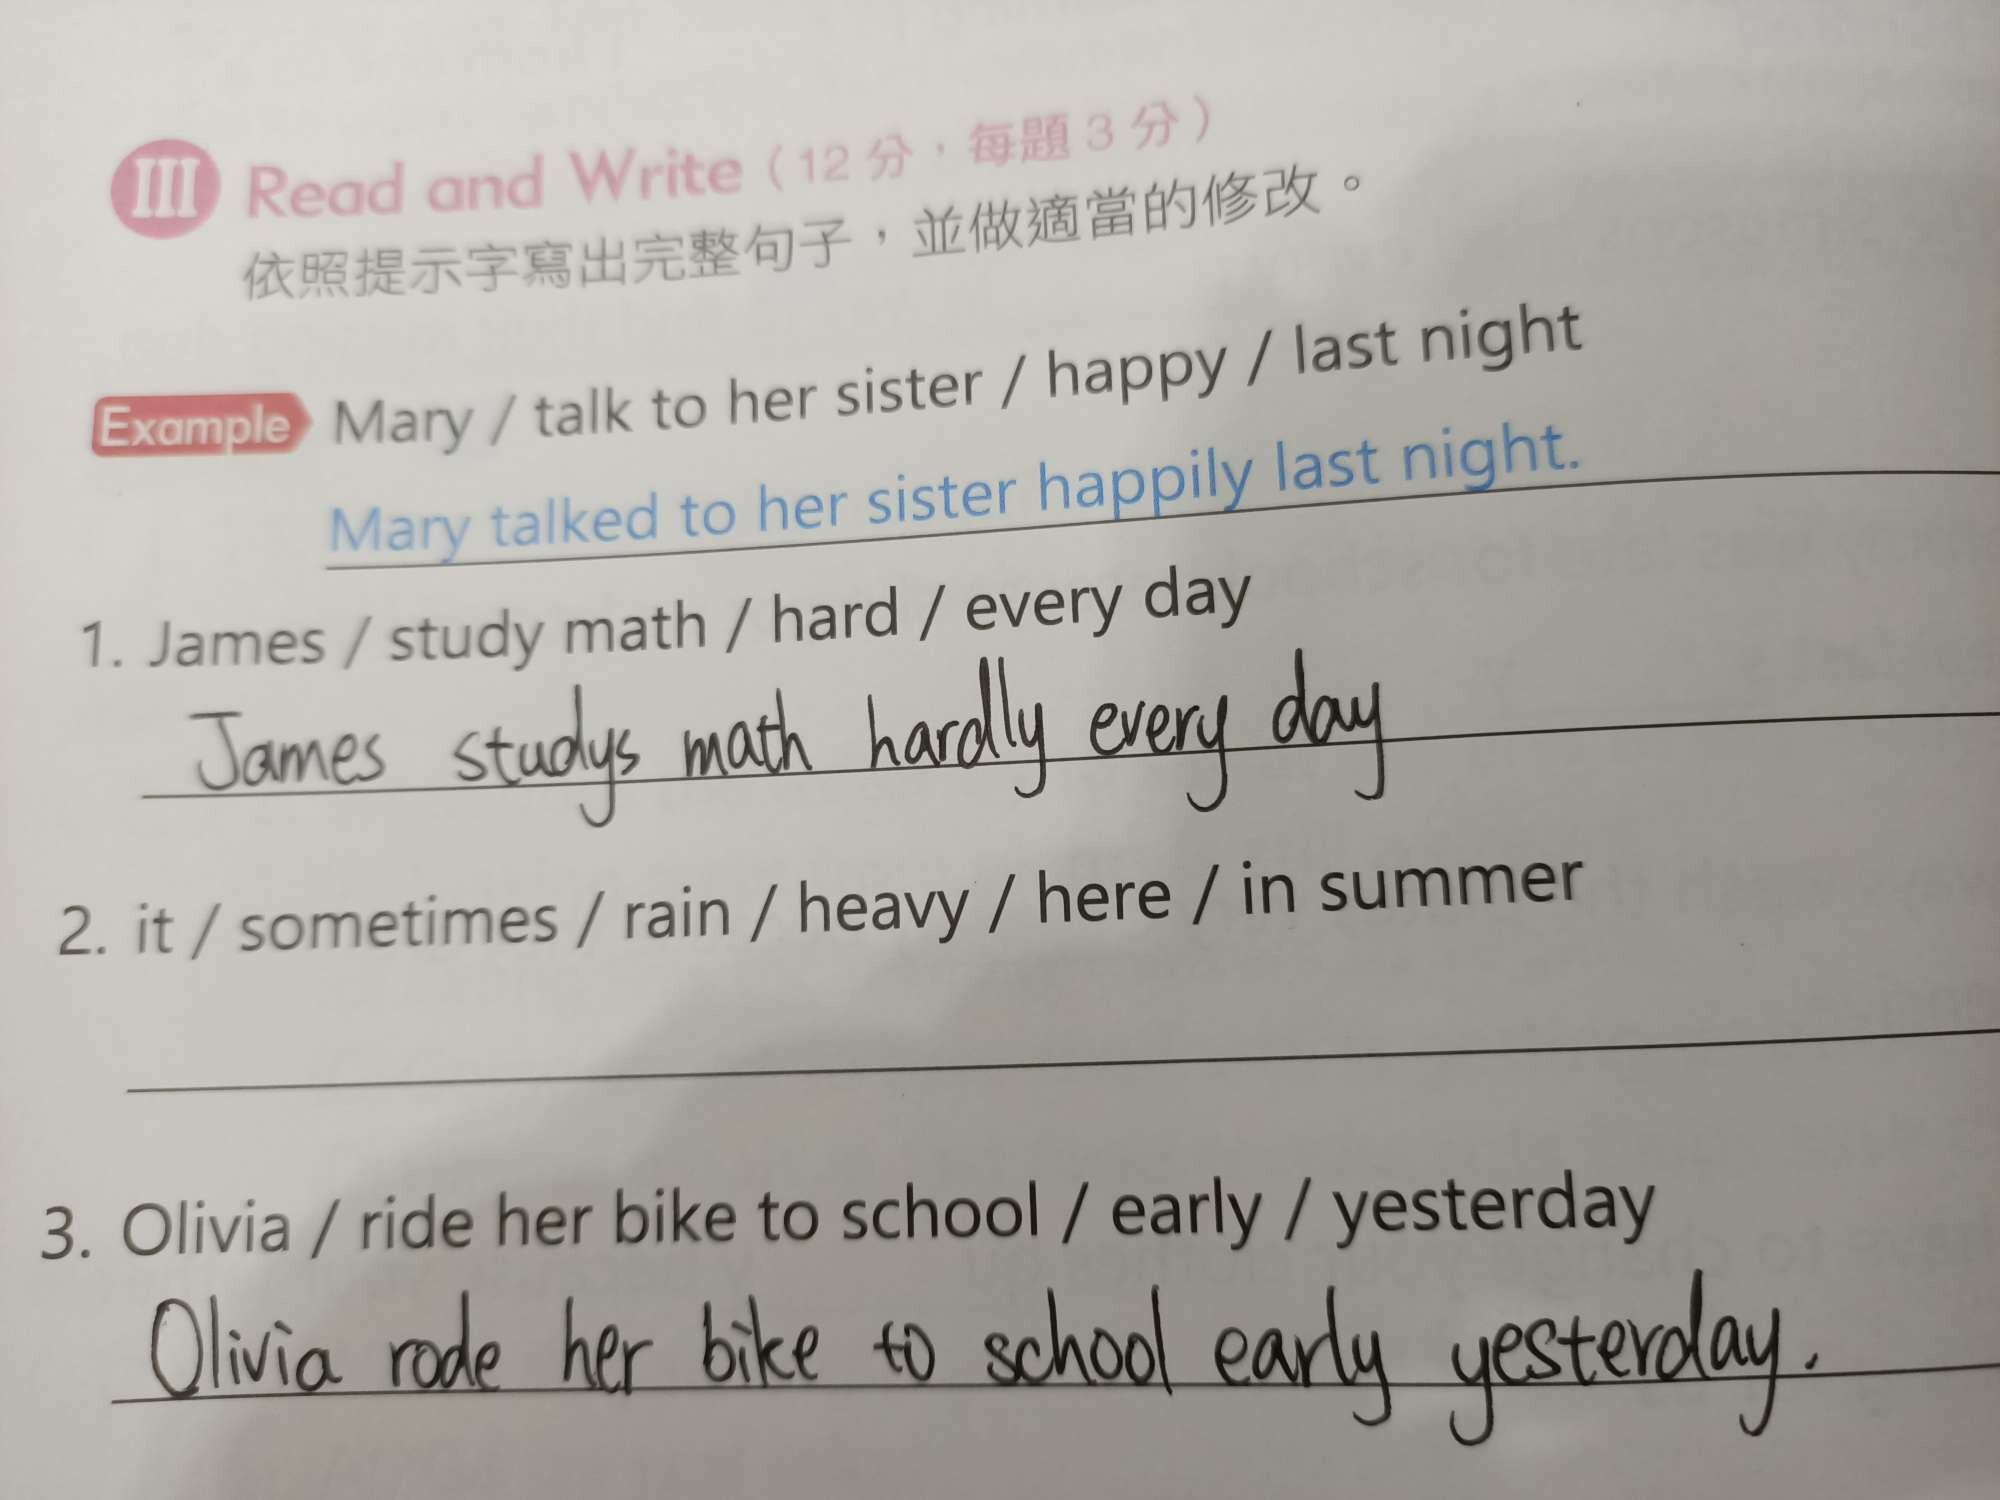 III Read and Write（12 分，每題 3 分）
依照提示字寫出完整句子，並做適當的修改。
Example Mary / talk to her sister / happy / last night
Mary talked to her sister happily last night.
1. James / study math / hard / every day
James studys math hardly every day
2. it / sometimes / rain / heavy / here / in summer
3. Olivia / ride her bike to school / early / yesterday
Olivia rode her bike to school early yesterday.